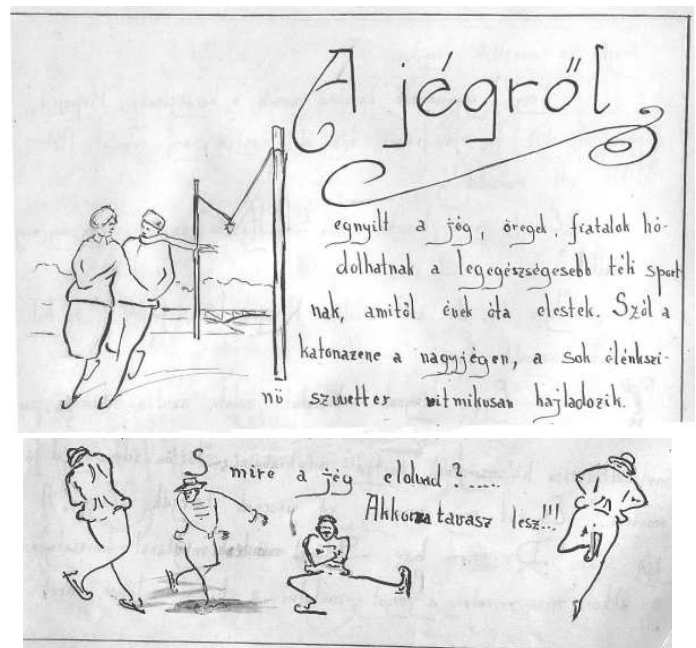 A jégről
egnyilt a jég, öregek, fiatalok hó-
dolhatnak a legegészségesebb téli sport
nak, amitől évek óta elestek. Szól a
katonazene a nagyjégen, a sok élénkszi-
nü szwetter ritmikusan hajladozik.
S mire a jég elolvad ?.....
Akkorra tavasz lesz...!!!